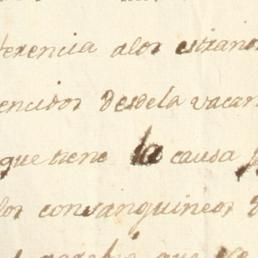 ferencia alos estraño
encidos desdela vacan
que tiene la causa
los consanguineos
que